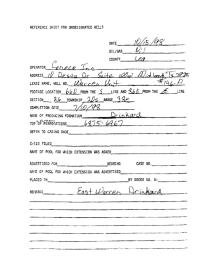 REFERENCE SHEET FOR UNDESIGNATED WELLS
DATE 10/15/98
OIL/GAS
COUNTY Lea
OPERATOR Conoco Inc
ADDRESS 10 Desta Dr. Suite Midland, Tx
LEASE NAME, WELL NO. Warren Unit
FOOTAGE LOCATION 660 FROM THE S LINE AND 860 FROM THE LINE
SECTION 26 TOWNSHIP 20s RANGE 38e
COMPLETION DATE
NAME OF PRODUCING FORMATION Drinkard
TOP OF PERFORATIONS
DEPTH TO CASING SHOE
C-123 FILED
NAME OF POOL FOR WHICH EXTENSION WAS ASKED
ADVERTISED FOR HEARING CASE NO.
NAME OF POOL FOR WHICH EXTENSION WAS ADVERTISED
PLACED IN BY ORDER NO. R-
REMARKS East Warren Drinkard